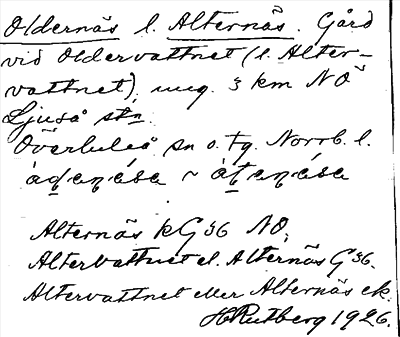 Oldernäs l. Alternäs. Gård
vid Oldervattnet (l. Alter-
vattnet), ung. 3 km NÖ
Ljuså stn.
Överluleå sn o. tg. Norrb. l.
Alternäs kG36 NO,
Altervattnet el. Alternäs G36.
Altervattnet eller Alternäs ek.
H Rutberg 1926.